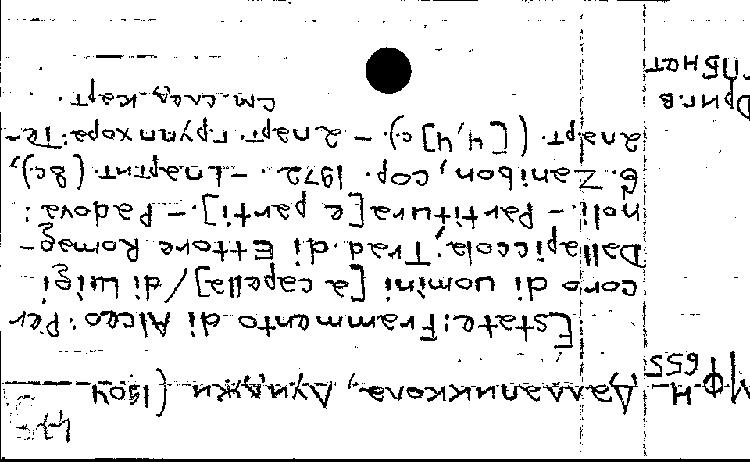 МФ Н-655
Даллапиккола, Луиджи (1904
Estate: Frammento di Alceo: Per
coro di uomini [a capella] / di Luigi
Dallapiccola; Trad. di Ettore Romag-
noli. - Partitura [e parti]. - Padova:
G. Zanibon, cop. 1972. - Lпартит (8 с),
2 парт. ([4,4] с). - 2 парт. группхора: Те-
см. след. карт.
Ориг. в
ГПБ нот